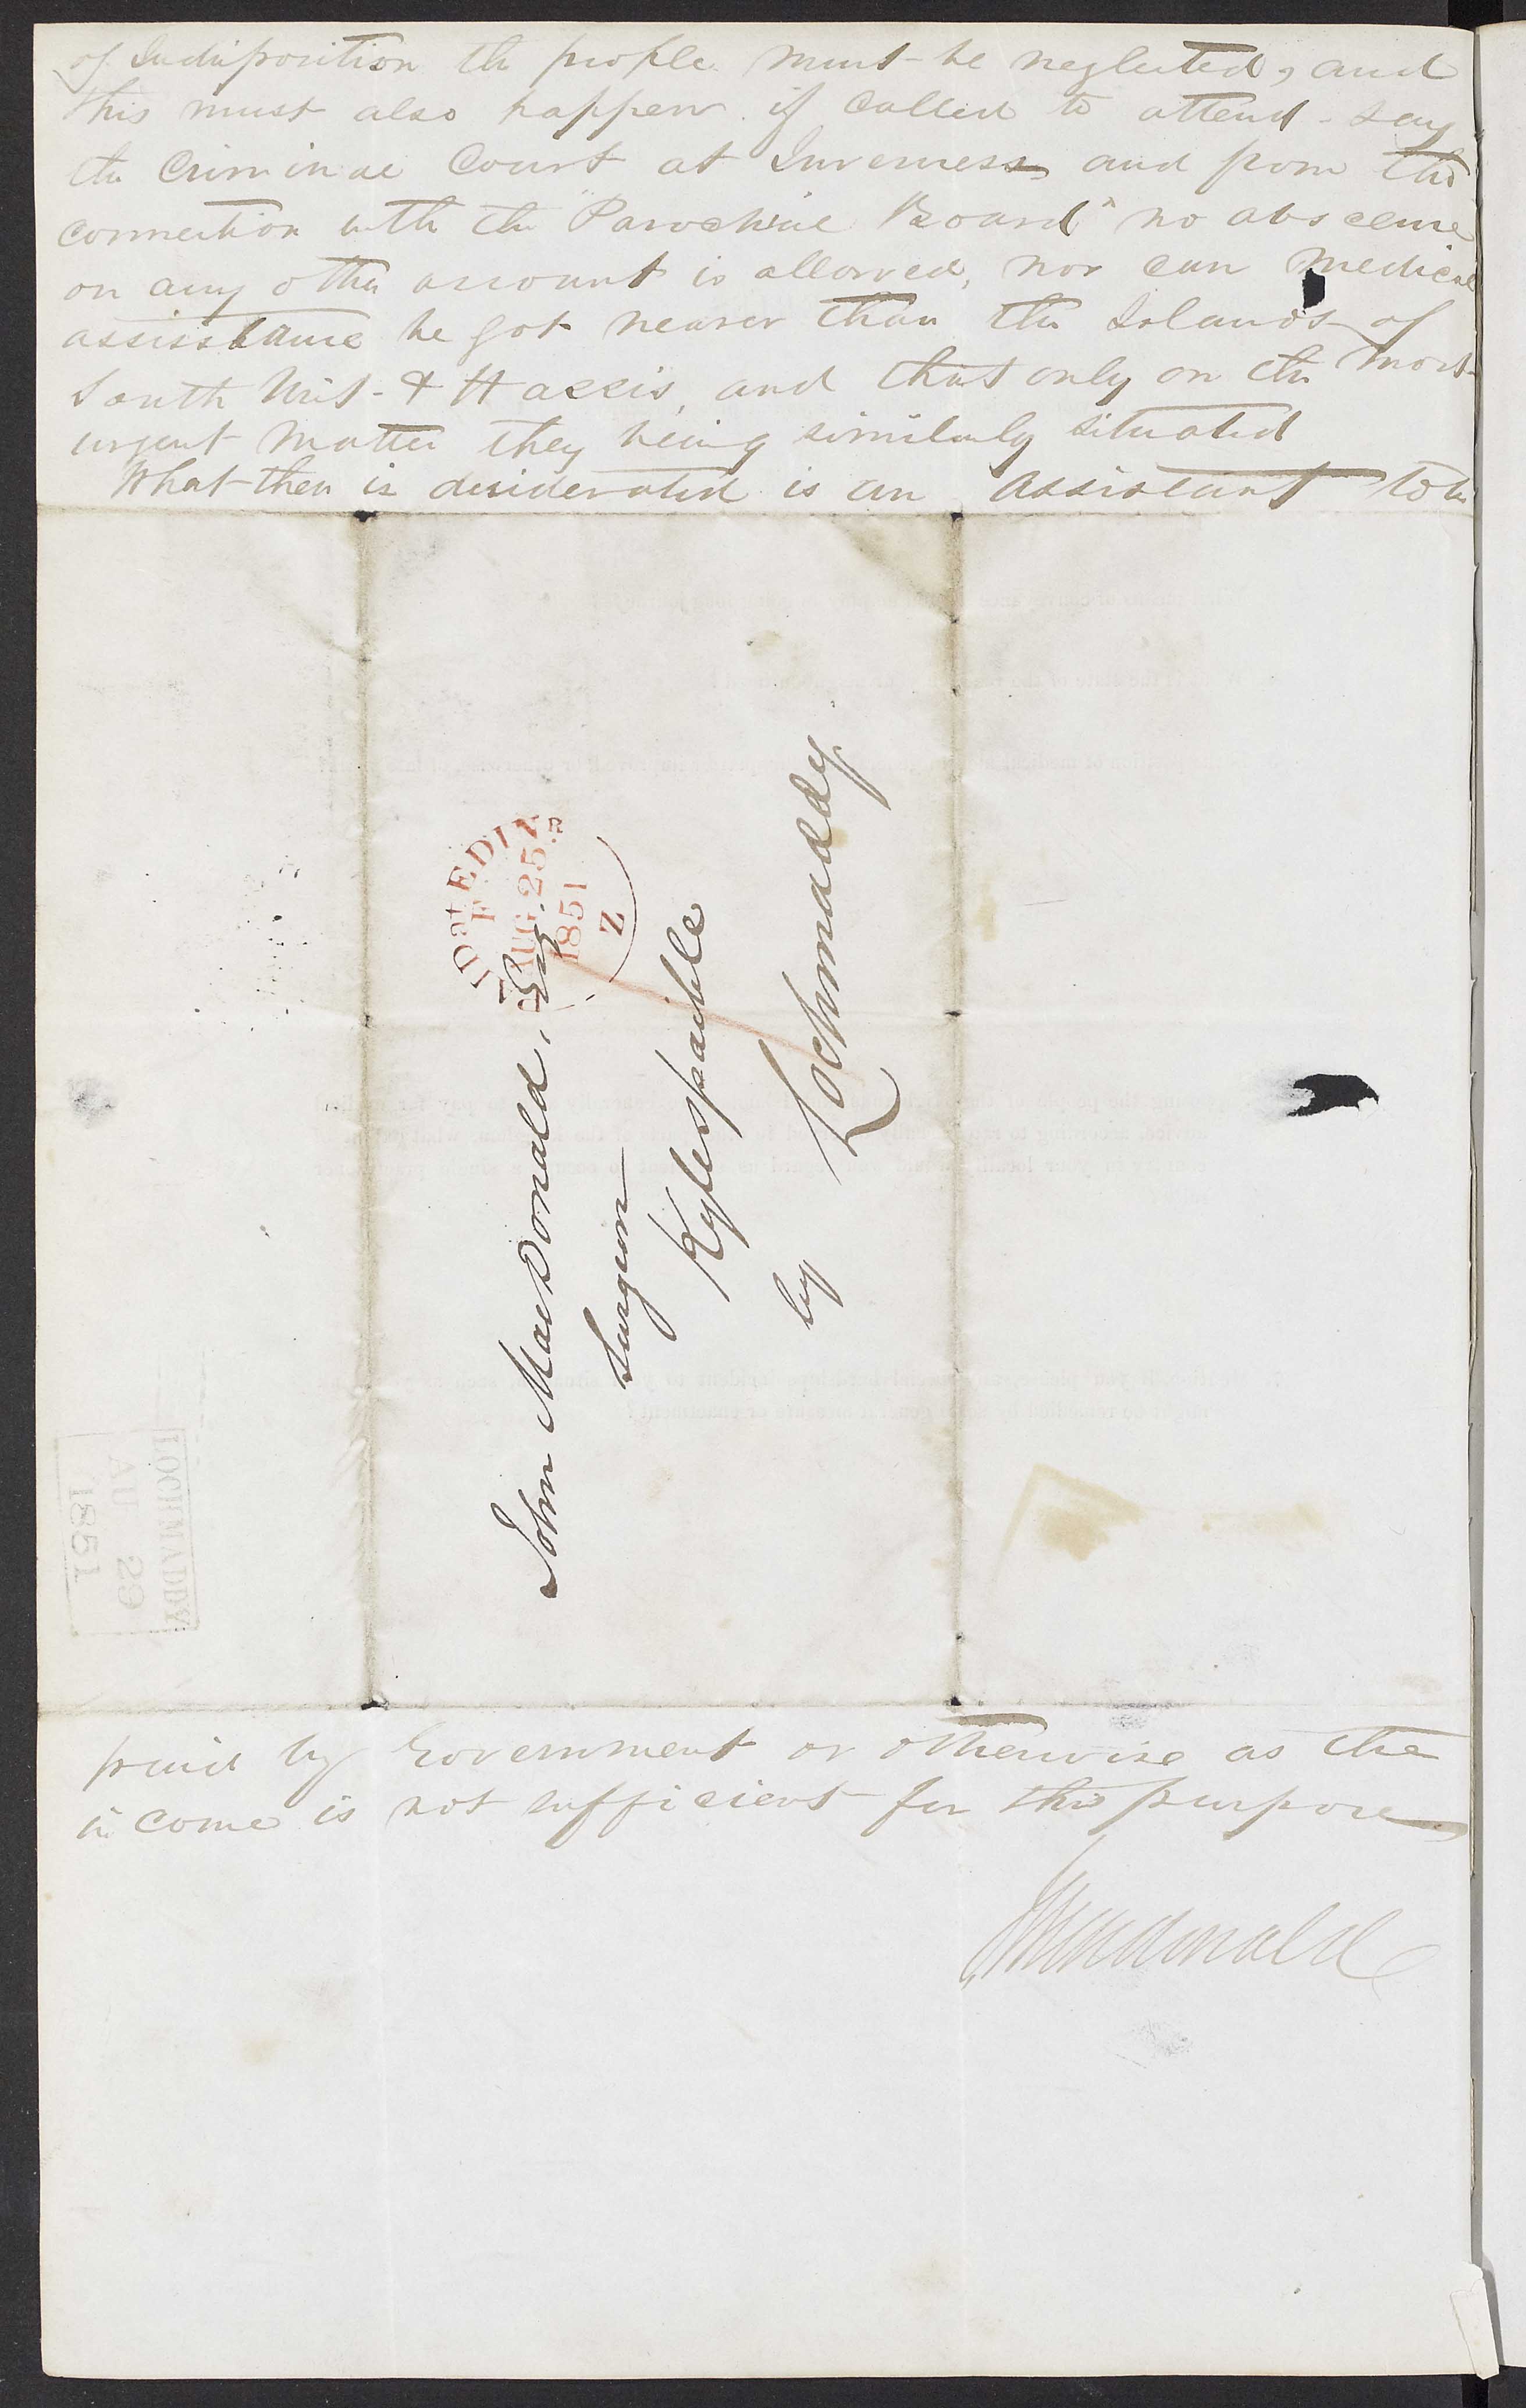 of Indisposition the people must be neglected, and
this must also happen if called to attend - say
the Criminal Court at Inverness and from the
connection with the "Parochial Board" no abscence
on any other account is allowed, nor can medical
assisstance be got nearer than the Islands of
South Uist - & Harris, and that only on the most
urgent matter they being similarly situated
What then is desiderated is an assistant to be
PAID at EDINR
F
AUG. 25.
1851
Z
John MacDonald, Esq.
Surgeon
Kylespaible
by Lochmaddy.
LOCHMADDY
AU 29
1851
paid by Government or otherwise as the
in come is not sufficient for this purpose
JMacdonald